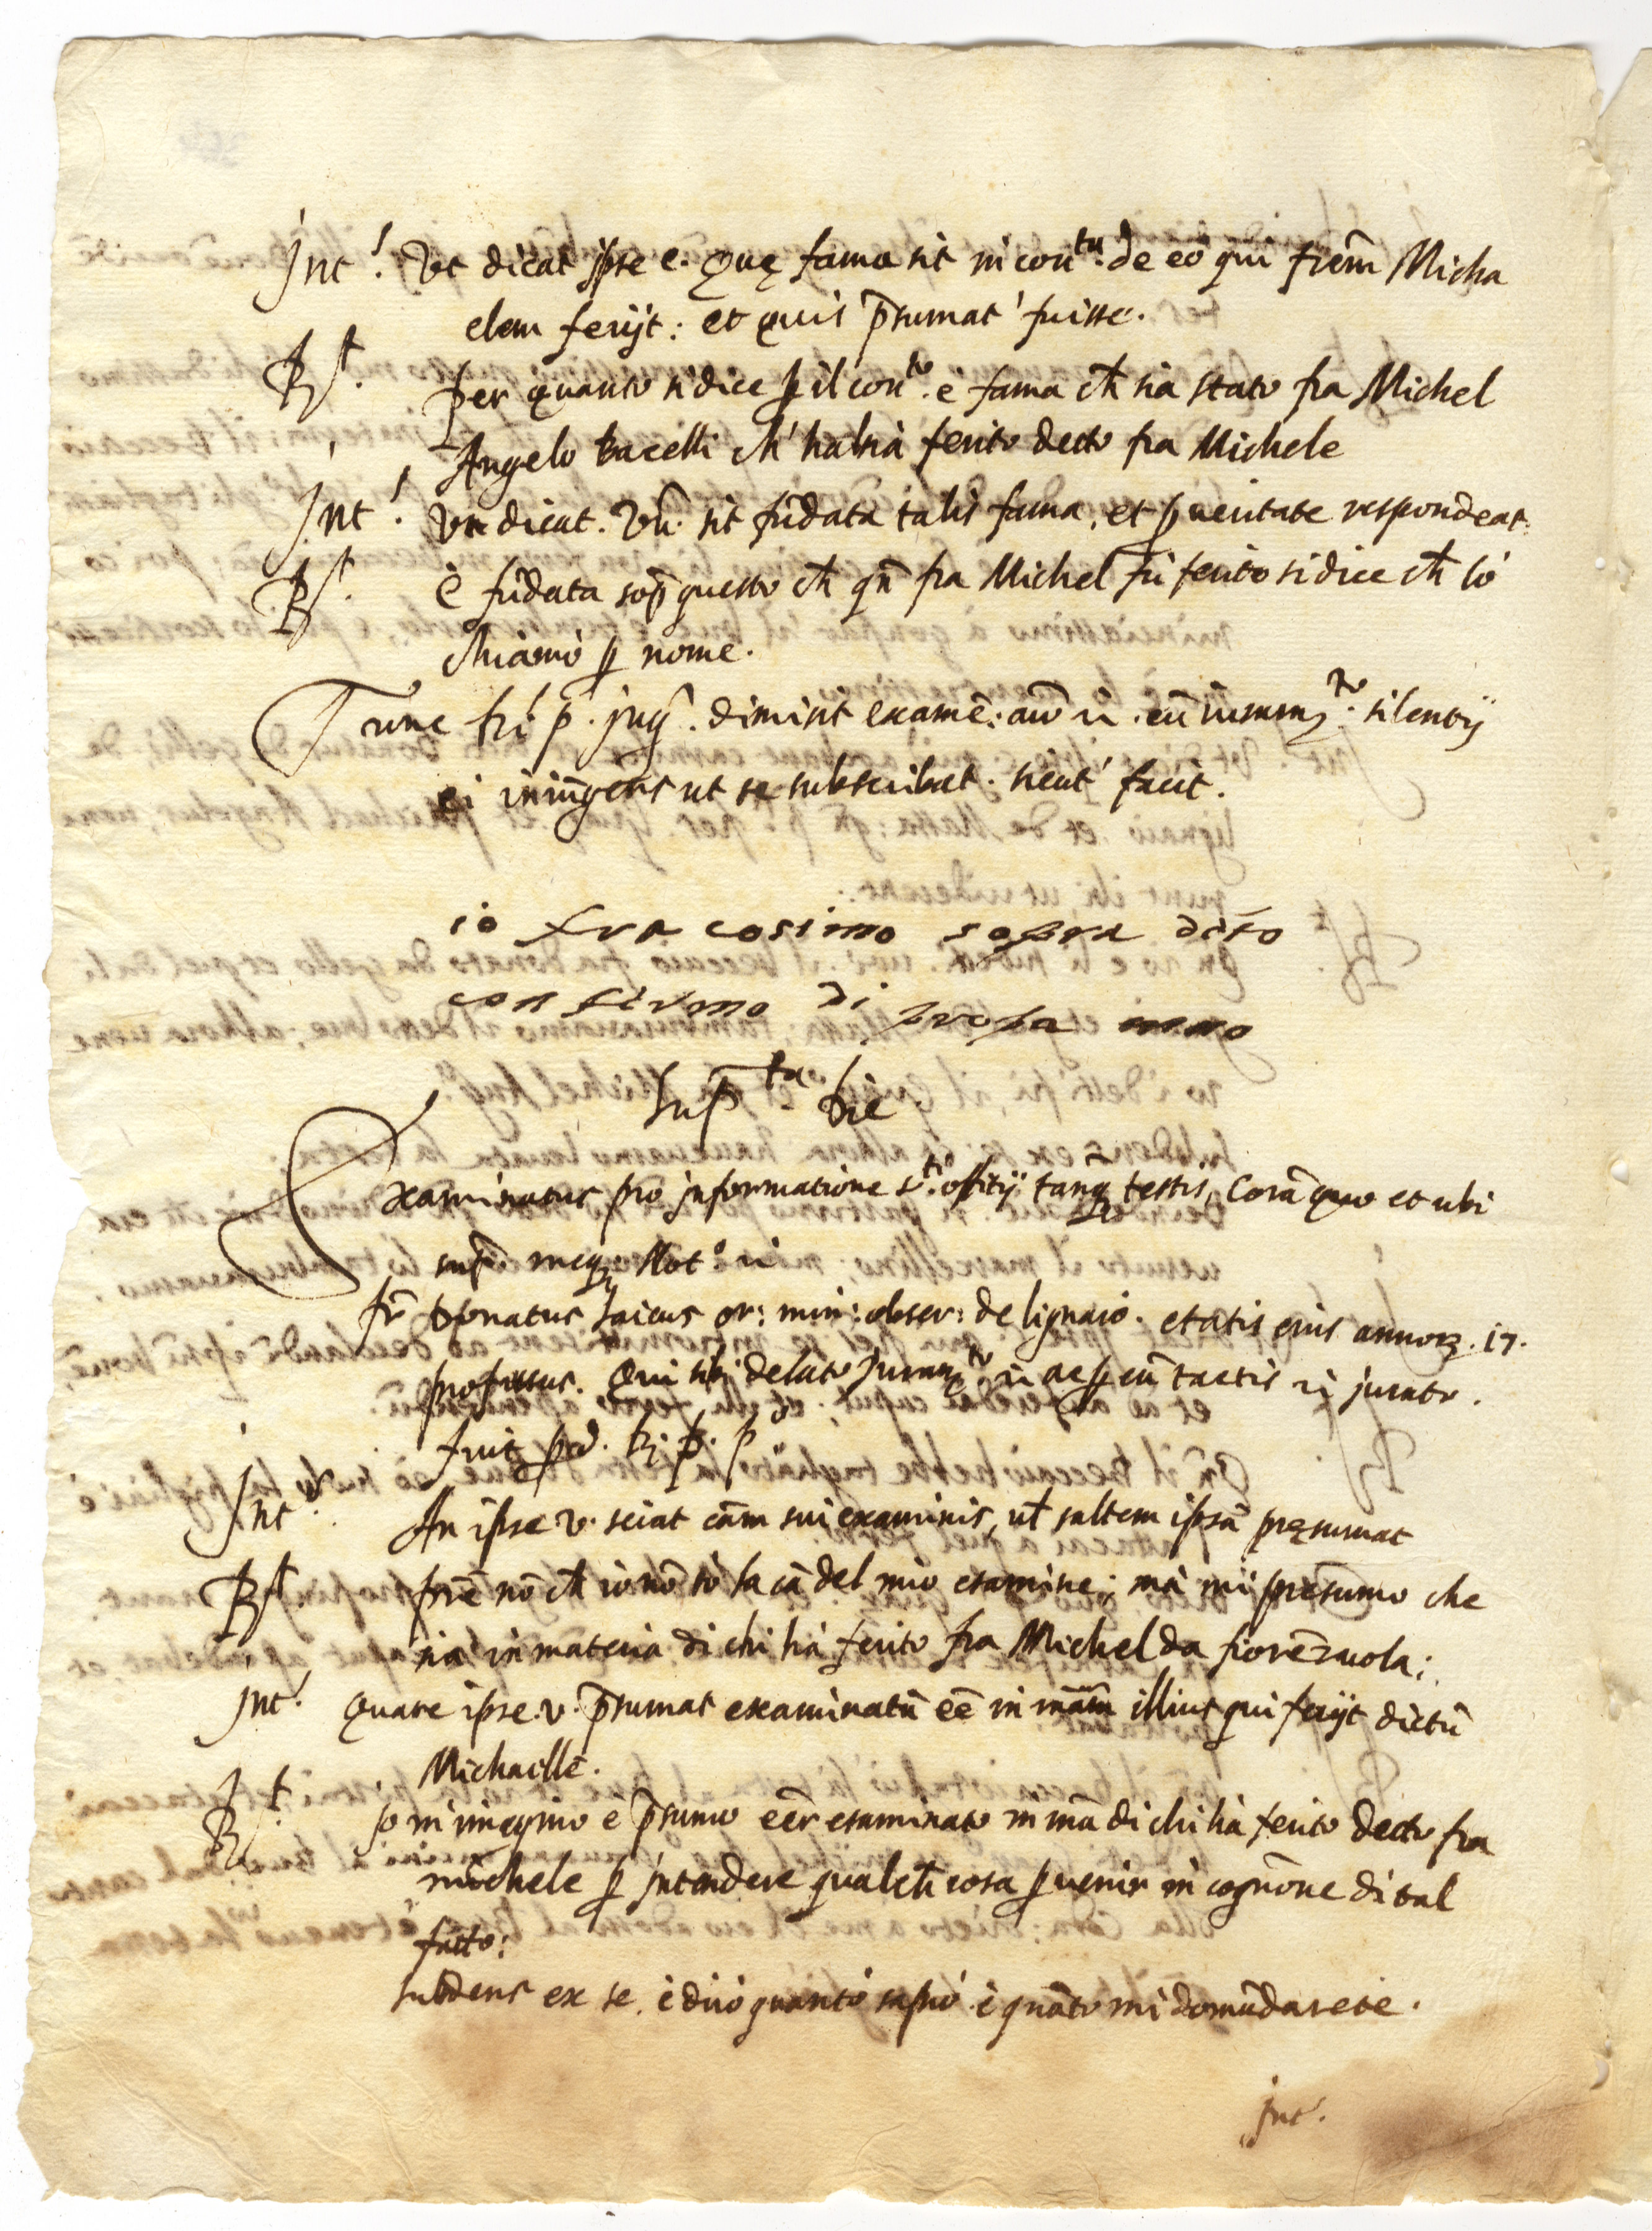 Int.' Ut dicat ipse e. Quę fama sit in con.tu de eo qui frēm Micha
elem ferijt: et quis p̄sumat' fuisse.
R.t per quanto si dice ꝑ il con.to è fama ch̄ sia stato fra Michel
Angelo bacelli ch' habia ferito decto fra Michele
Int.' Vn dicat. Vn̄. sit fūdata talis fama, et ꝑ ueritate respondeat.
R.t È fūdata sop̄ questo ch̄ qn̄ fra Michel fu ferito si dice ch̄ lo
chiamò ꝑ nome.
Tunc p̄. dimisit examē: cū silentij
ei iniūgens ut se subscribat. sicut' fecit.
io fra cosimo sopra dito
con firmo di propa mano
Sup.ta die
Examinatus pro informatione s.ti offitij tanq̃ testis, Corā quo et ubi
sup̄. meq; Not.o
fr̄ Donatus laicus or: min: obser: de lignaio. etatis eius annorꝫ. 17.
professus. Qui sibi delato Juram.to ac ꝑ eū tactis jurato.
fuit
Int.s An ipse v. sciat cām sui examinis, ul̄ saltem ipsā pręsumat
R.t prē nō ch̄ io nō sò la cā del mio esamine; mà mi presumo che
sia in materia di chi hà ferito fra Michel da fiorēzuola;
Int.' Quare ipse. v. p̄sumat examinatū eē in mām illius qui ferijt dictū
Michaellē.
R.t Jo m'imagino è p̄sumo eēr esaminato in mā di chi hà ferito decto fra
michele ꝑ jntendere qualch̄ cosa ꝑ uenir in cogn̄one di tal
fatto:
subdens ex se. è dirò quanto saprò è quāto mi domādarete.
Int.